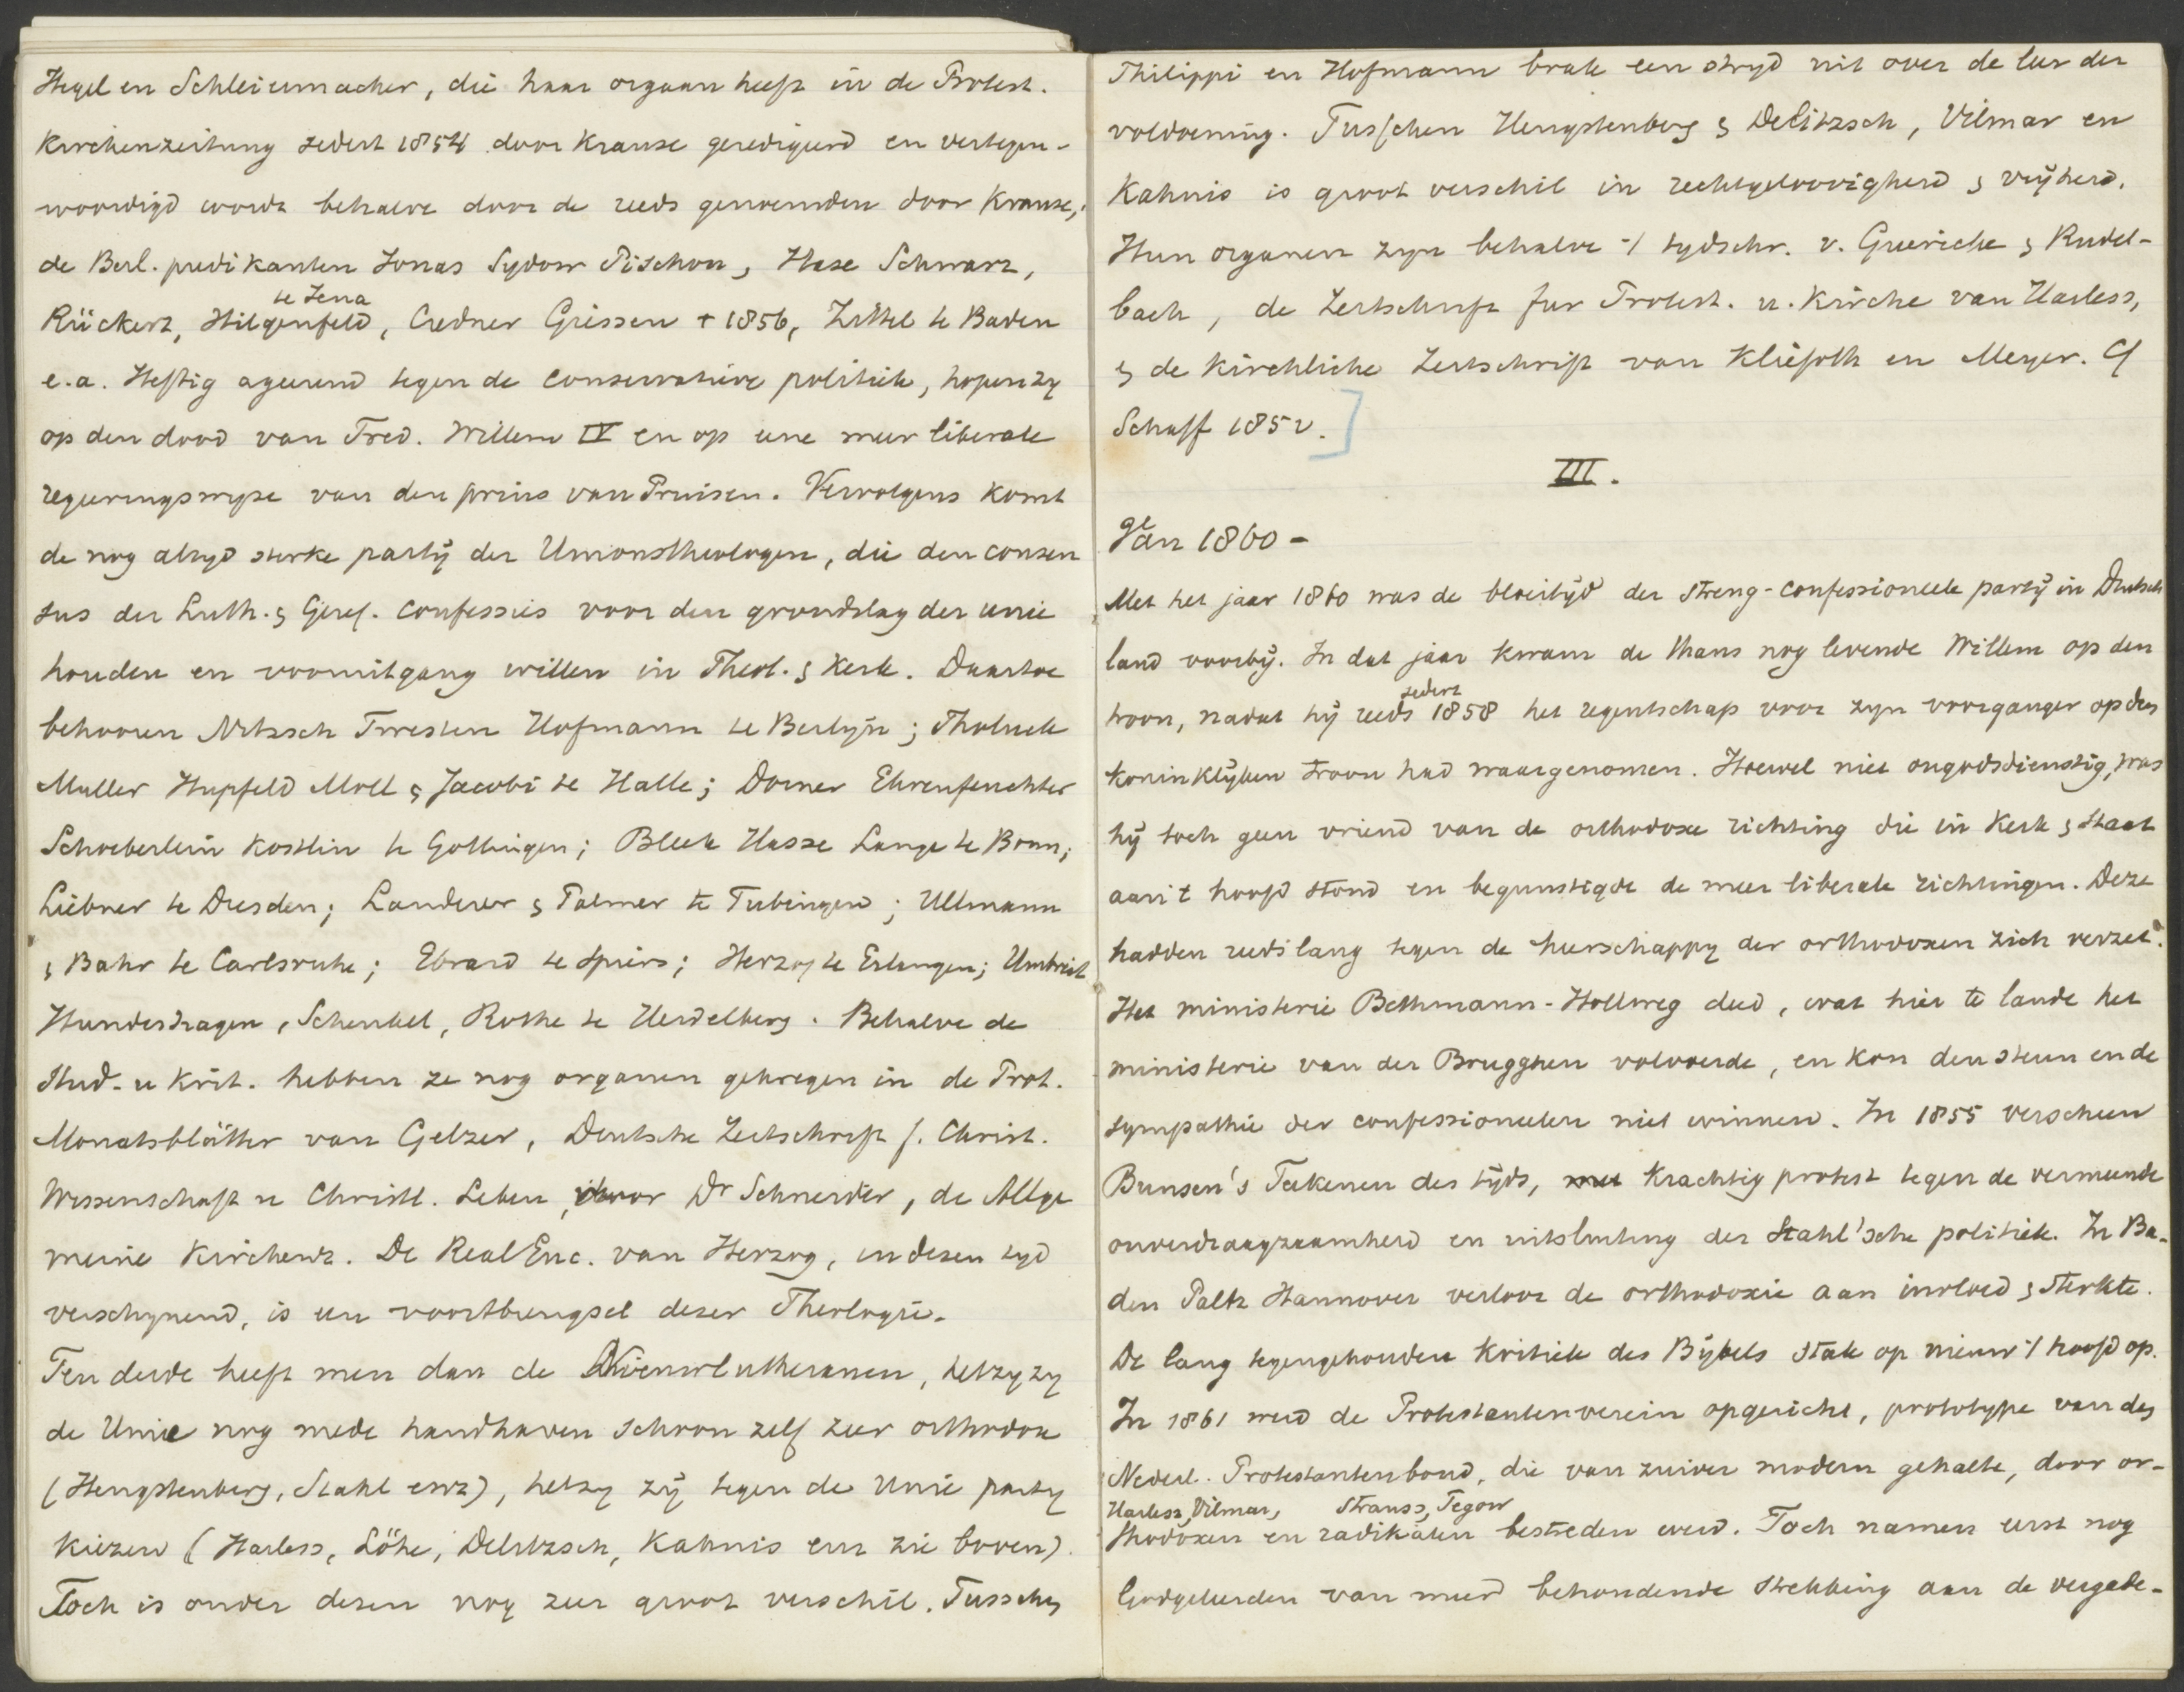 Hegel en Schleiermacher, die haar orgaan heeft in de Protest.
Kirchenzeitung sedert 1854 door Krause geredigeerd en vertegen-
woordigd wordt behalve door de reeds genoemden door Krause,
de Berl. predikanten Jonas Sydow Pischon, Hase Schwarz,
te Jena
Rückert, Hilgenfeld, Credner Giessen † 1856, Zittel te Baden
e.a. Heftig ageerend tegen de conservatieve politiek, hopen zy
op den dood van Fred. Willem IV en op eene meer liberale
regeeringswyze van den prins van Pruisen. Vervolgens komt
de nog altyd sterke partÿ der Unionstheologen, die den consen
sus der Luth. & Geref. confessies voor den grondslag der unie
houden en vooruitgang willen in Theol. & Kerk. Daartoe
behooren Nitzsch Twesten Hofmann te Berlyn; Tholuck
Muller Hupfeld Moll & Jacobi te Halle; Dorner Ehrenfeuchter
Schoeberlein Kostlin te Gottingen; Bleek Hasse Lange te Bonn;
Liebner te Dresden; Landerer & Palmer te Tubingen; Ullmann
& Bahr te Carlsruhe; Ebrard te Spiers; Herzog te Erlangen; Umbreit
Hundeshagen, Schenkel, Rothe te Heidelberg. Behalve de
Stud. u Krit. hebben ze nog organen gekregen in de Prot.
Monatsblätter van Gelzer, Deutsche Zeitschrift f. Christ.
Wissenschaft u Christl. Leben, door Dr Schneider, de Allge
meine Kirchenz. De RealEnc. van Herzog, in dezen tyd
verschynend, is een voortbrengsel dezer Theologie.
Ten derde heeft men dan de Nieuwlutheranen, hetzy zy
de Unie nog mede handhaven schoon zelf zeer orthodox
(Hengstenberg, Stahl enz), hetzy zÿ tegen de Unie party
kiezen (Harless, Löhe, Delitzsch, Kahnis enz zie boven).
Toch is onder dezen nog zeer groot verschil. Tusschen
Philippi en Hofmann brak een stryd uit over de leer der
voldoening. Tusschen Hengstenberg & Delitzsch, Vilmar en
Kahnis is groot verschil in rechtgeloovigheid & vrÿheid.
Hun organen zyn behalve 't tydschr. v. Guericke & Rudel-
bach, de Zeitschrift fur Protest. u. Kirche van Harless,
& de Kirchliche Zeitschrift van Kliefoth en Meyer. Cf
Schaff 1852.]
III.
Van 1860 -
Met het jaar 1860 was de bloeitÿd der streng-confessioneele partÿ in Duitsch
land voorbÿ. In dat jaar kwam de thans nog levende Willem op den
sedert
troon, nadat hÿ reeds 1858 het regentschap voor zyn voorganger op den
koninklÿken troon had waargenomen. Hoewel niet ongodsdienstig, was
hÿ toch geen vriend van de orthodoxe richting die in Kerk & Staat
aan 't hoofd stond en begunstigde de meer liberale richtingen. Deze
hadden reeds lang tegen de heerschappy der orthodoxen zich verzet.
Het ministerie Bethmann-Hollweg deed, wat hier te lande het
ministerie van der Brugghen volvoerde, en kon den steun en de
sympathie der confessioneelen niet winnen. In 1855 verscheen
Bunsen's Teekenen des tÿds, met krachtig protest tegen de vermeende
onverdraagzaamheid en uitsluiting der Stahl'sche politiek. In Ba-
den Paltz Hannover verloor de orthodoxie aan invloed & sterkte.
De lang tegengehouden kritiek des Bÿbels stak op nieuw 't hoofd op.
In 1861 werd de Protestantenverein opgericht, prototype van den
Nederl. Protestantenbond, die van zuiver modern gehalte, door or-
Harless, Vilmar, Strauss, Tegow
thodoxen en radikalen bestreden werd. Toch namen eerst nog
Godgeleerden van meer behoudende strekking aan de vergade-